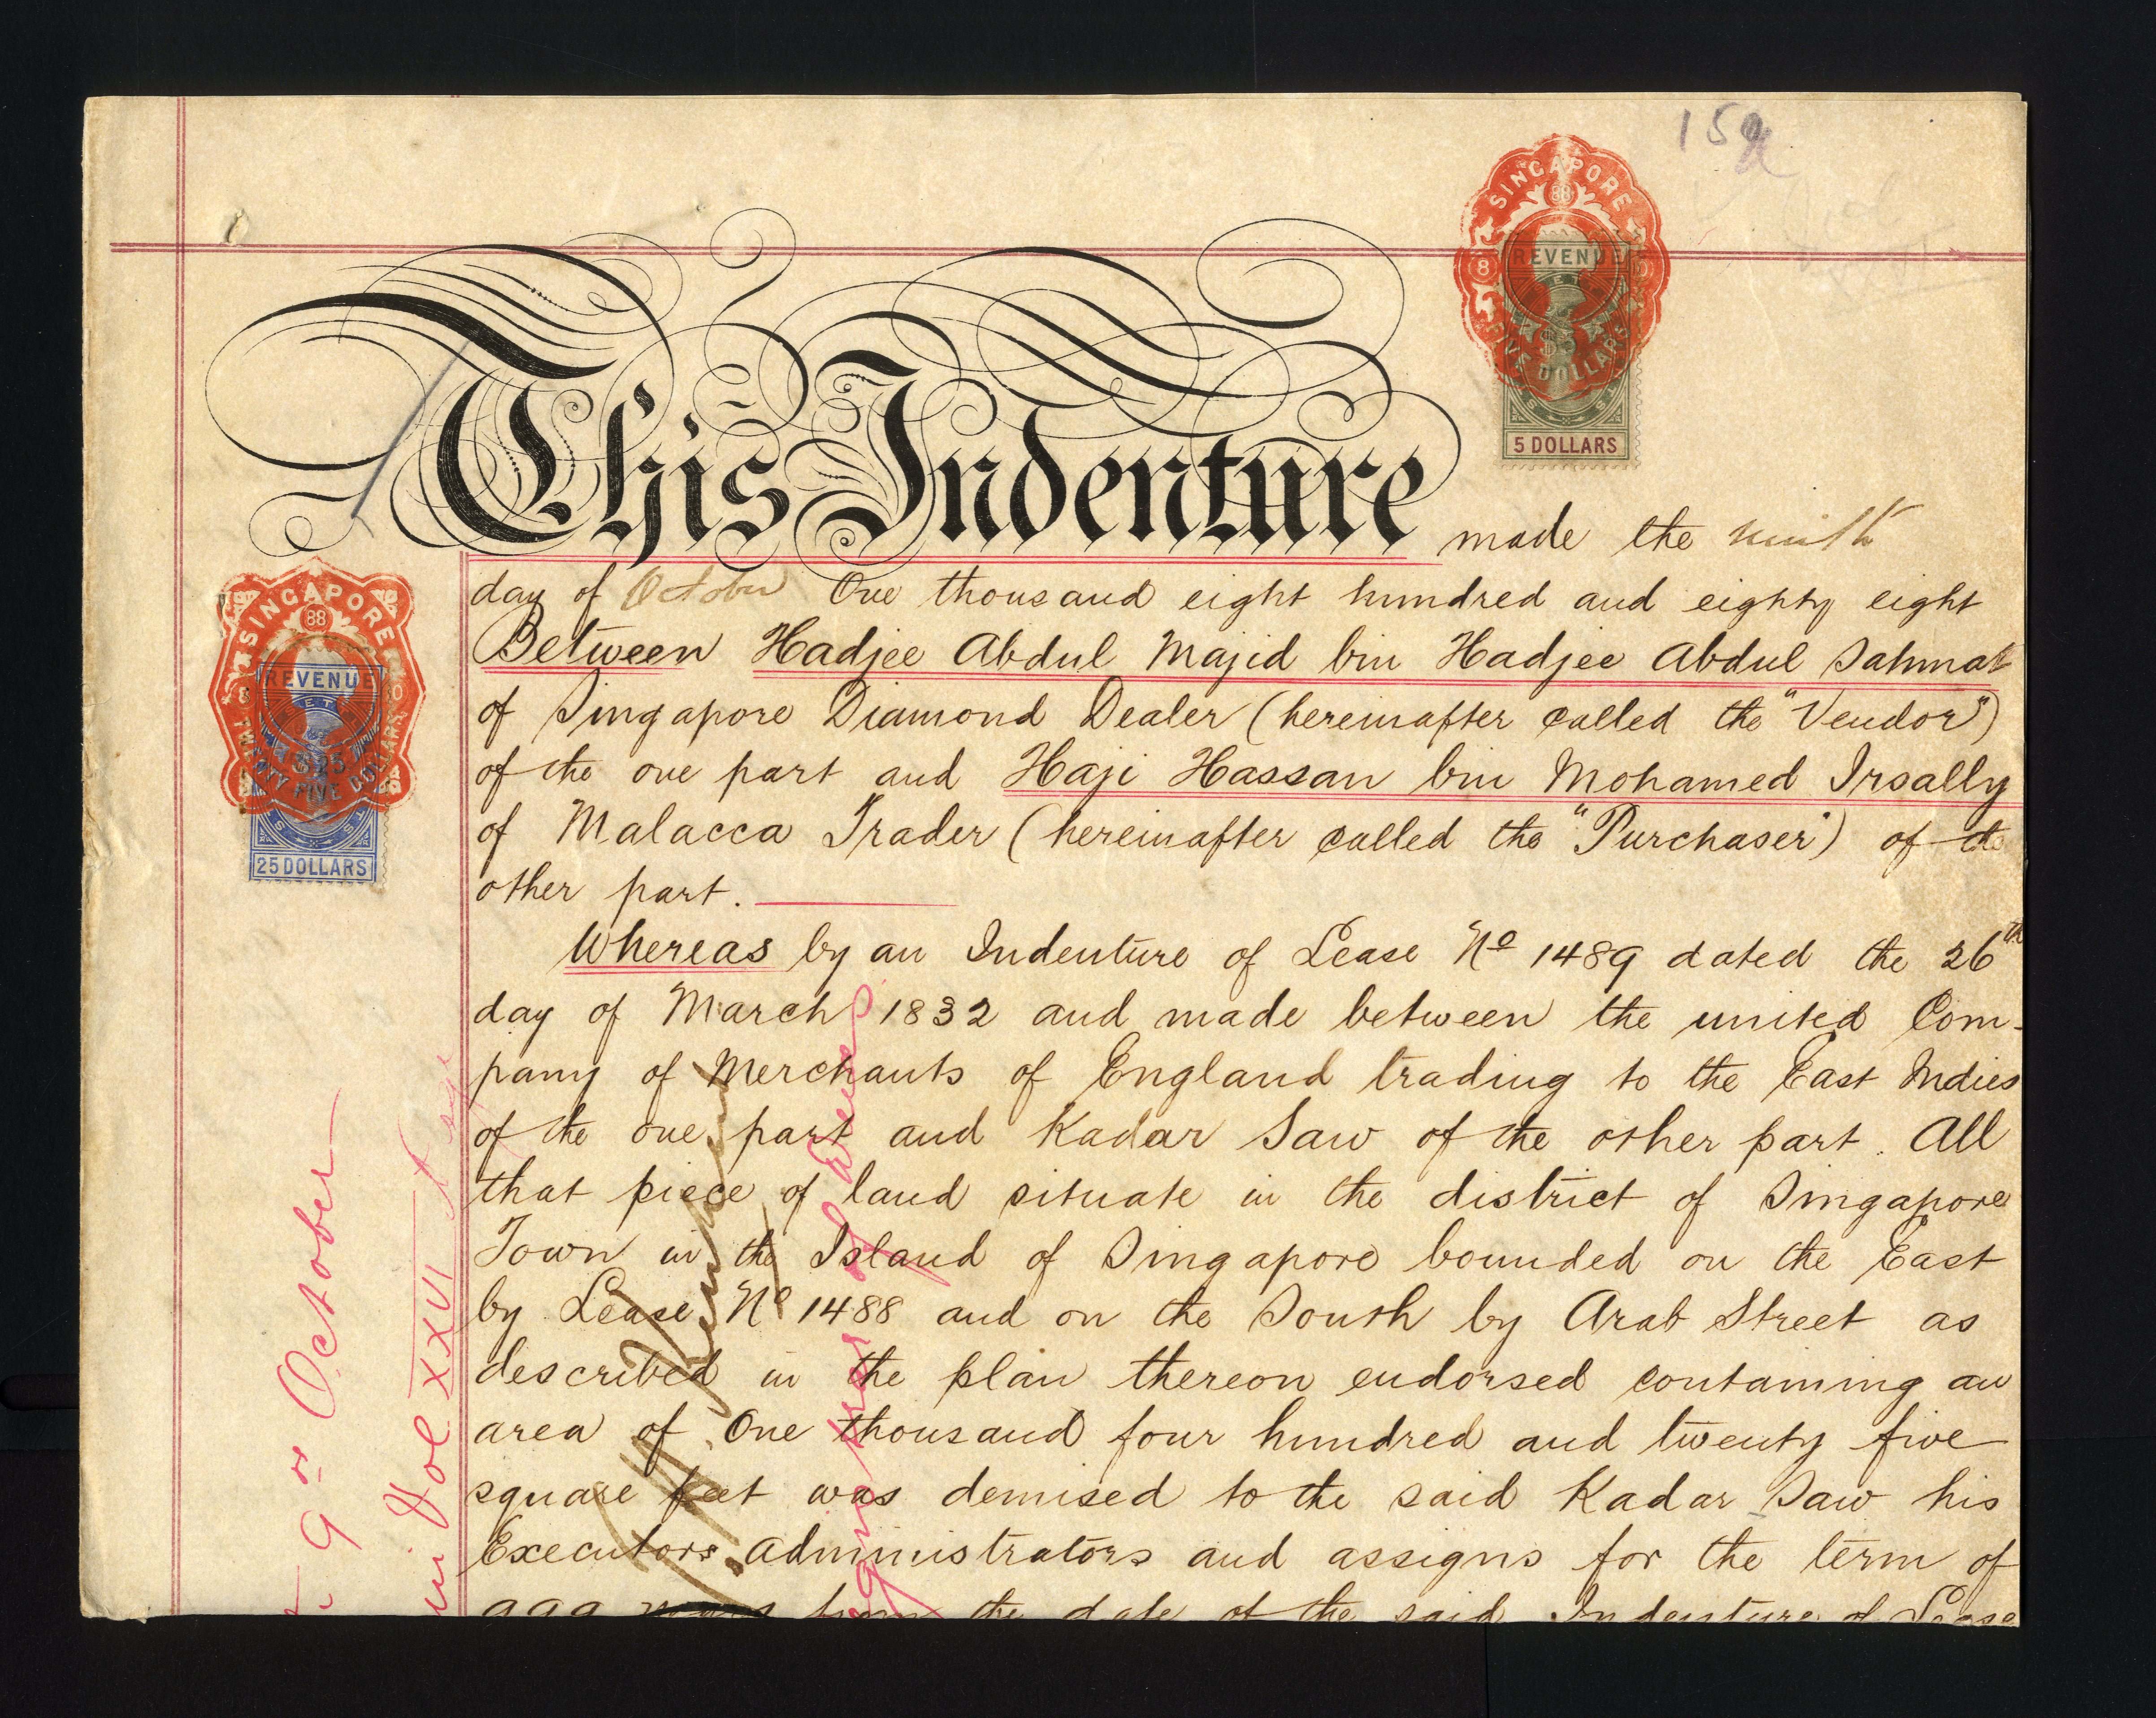 159
SINGAPORE
88
REVENUE
$5
FIVE DOLLARS
5 DOLLARS
This Indenture made the ninth
day of October One thousand eight hundred and eighty eight
Between Hadjee Abdul Majid bin Hadjee Abdul Sahmat
of Singapore Diamond Dealer (hereinafter called the "Vendor")
of the one part and Haji Hassan bin Mohamed Irsally
of Malacca Trader (hereinafter called the "Purchaser") of the
other part.
Whereas by an Indenture of Lease No 1489 dated the 26th
day of March 1832 and made between the united Com-
pany of Merchants of England trading to the East Indies
of the one part and Kadar Saw of the other part. All
that piece of land situate in the district of Singapore
Town in the Island of Singapore bounded on the East
by Lease No 1488 and on the South by Arab Street as
described in the plan thereon endorsed containing an
area of One thousand four hundred and twenty five
square feet was demised to the said Kadar Saw his
Executors administrators and assigns for the term of
999 years from the date of the said Indenture of Lease
SINGAPORE
88
REVENUE
$25
TWENTY FIVE DOLLARS
25 DOLLARS
9th October
in Vol XXVI
Registrar of Deeds